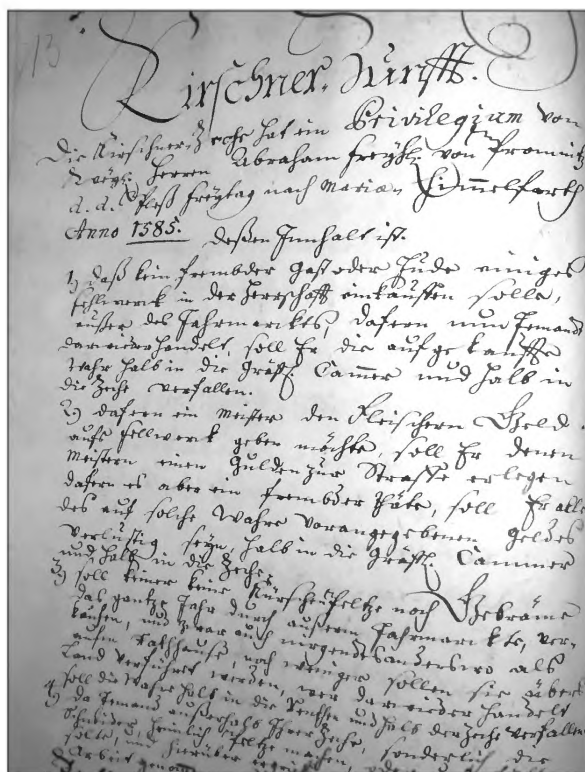 13
Kirschner Zunfft.
Die Kürschner Zeche hat ein Privilegium von
Herrn Abraham Freyh: von Promnitz
d. d. Pleß Freytag nach Mariae Himmelfarth
Anno 1585. deßen Innhalt ist.
1) daß kein frembder Gast oder Jude einiges
fellwerck in der Herrschafft einkauffen solle,
außer des Jahrmarckts, dafern nun Jemand
darwieder handelt, soll Er die aufgekauffte
Wahr halb in die Gräffl: Cammer und halb in
die Zeche verfallen.
2) dafern ein Meister den Fleischern Geld
aufs fellwerck geben möchte, soll Er denen
Meistern einen Gulden zur Straffe erlegen
dafern es aber ein frembder thäte, soll Er alle
des auf solche Wahre vorangegebenen Geldes
verlustig seyn, halb in die Gräffl: Cammer
und halb in die Zeche.
3) soll keiner keine Kürschpeltze noch Gebräme
das gantze Jahr durch außerm Jahrmarckte, ver-
kauffen, und zwar auch nirgends anderswo als
aufm Rathhause, noch weniger sollen sie übers
Land verführet werden, wer darwieder handelt
soll die Wahre halb in die und halb der Zeche verfallen
4) da Jemand außerhalb Ihrer Zeche, sonderlich die
Schneider, heimlich peltze machen,
solte, und hierüber
Arbeit genommen